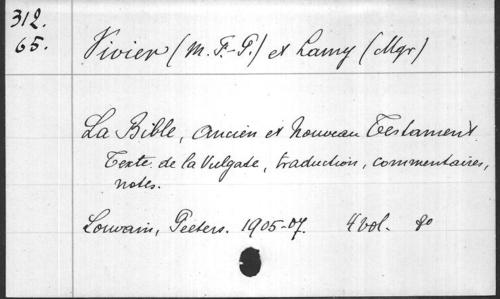 312.
65.
Vivier (M. F.-P.) et Lamy (Mgr)
La Bible, Ancien et Nouveau Testament.
Texte de la Vulgate, traduction, commentaires,
notes.
Louvain, Peeters. 1905-07. 4 vol. 8o